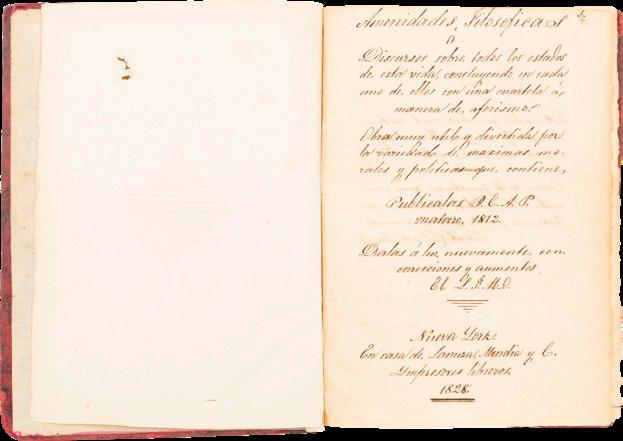 Amenidades Filosoficas
ó
Discursos sobre todos los estados
de esta vida, concluyendo en cada
uno de ellos con una cuarteta á
manera de, aforismo.
Obra muy util y divertida por
la variedad de maximas mo-
rales y politicas que, contiene,
Publicalas D. C. A. P.
Mataro, 1812.
Dalas á luz nuevamente con
correcciones y aumentos
El L. J. M. D.
Nueva York:
En casa de Lanuza, Mendia y C.
Ympresores libreros.
1828.